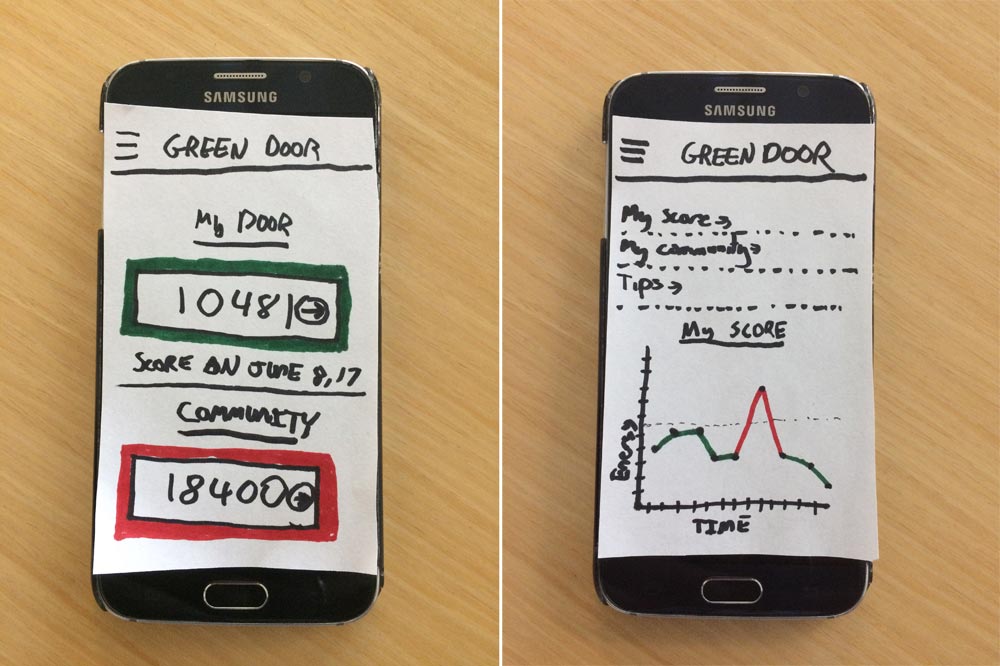 SAMSUNG
GREEN DOOR
My DOOR
10481→
SCORE ON JUNE 8, 17
COMMUNITY
18400→
SAMSUNG
GREEN DOOR
My score→
My community→
Tips→
My SCORE
Energy
TIME